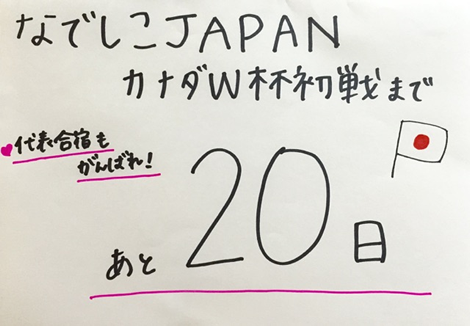 なでしこJAPAN
カナダW杯初戦まで
代表合宿も
がんばれ！
あと20日